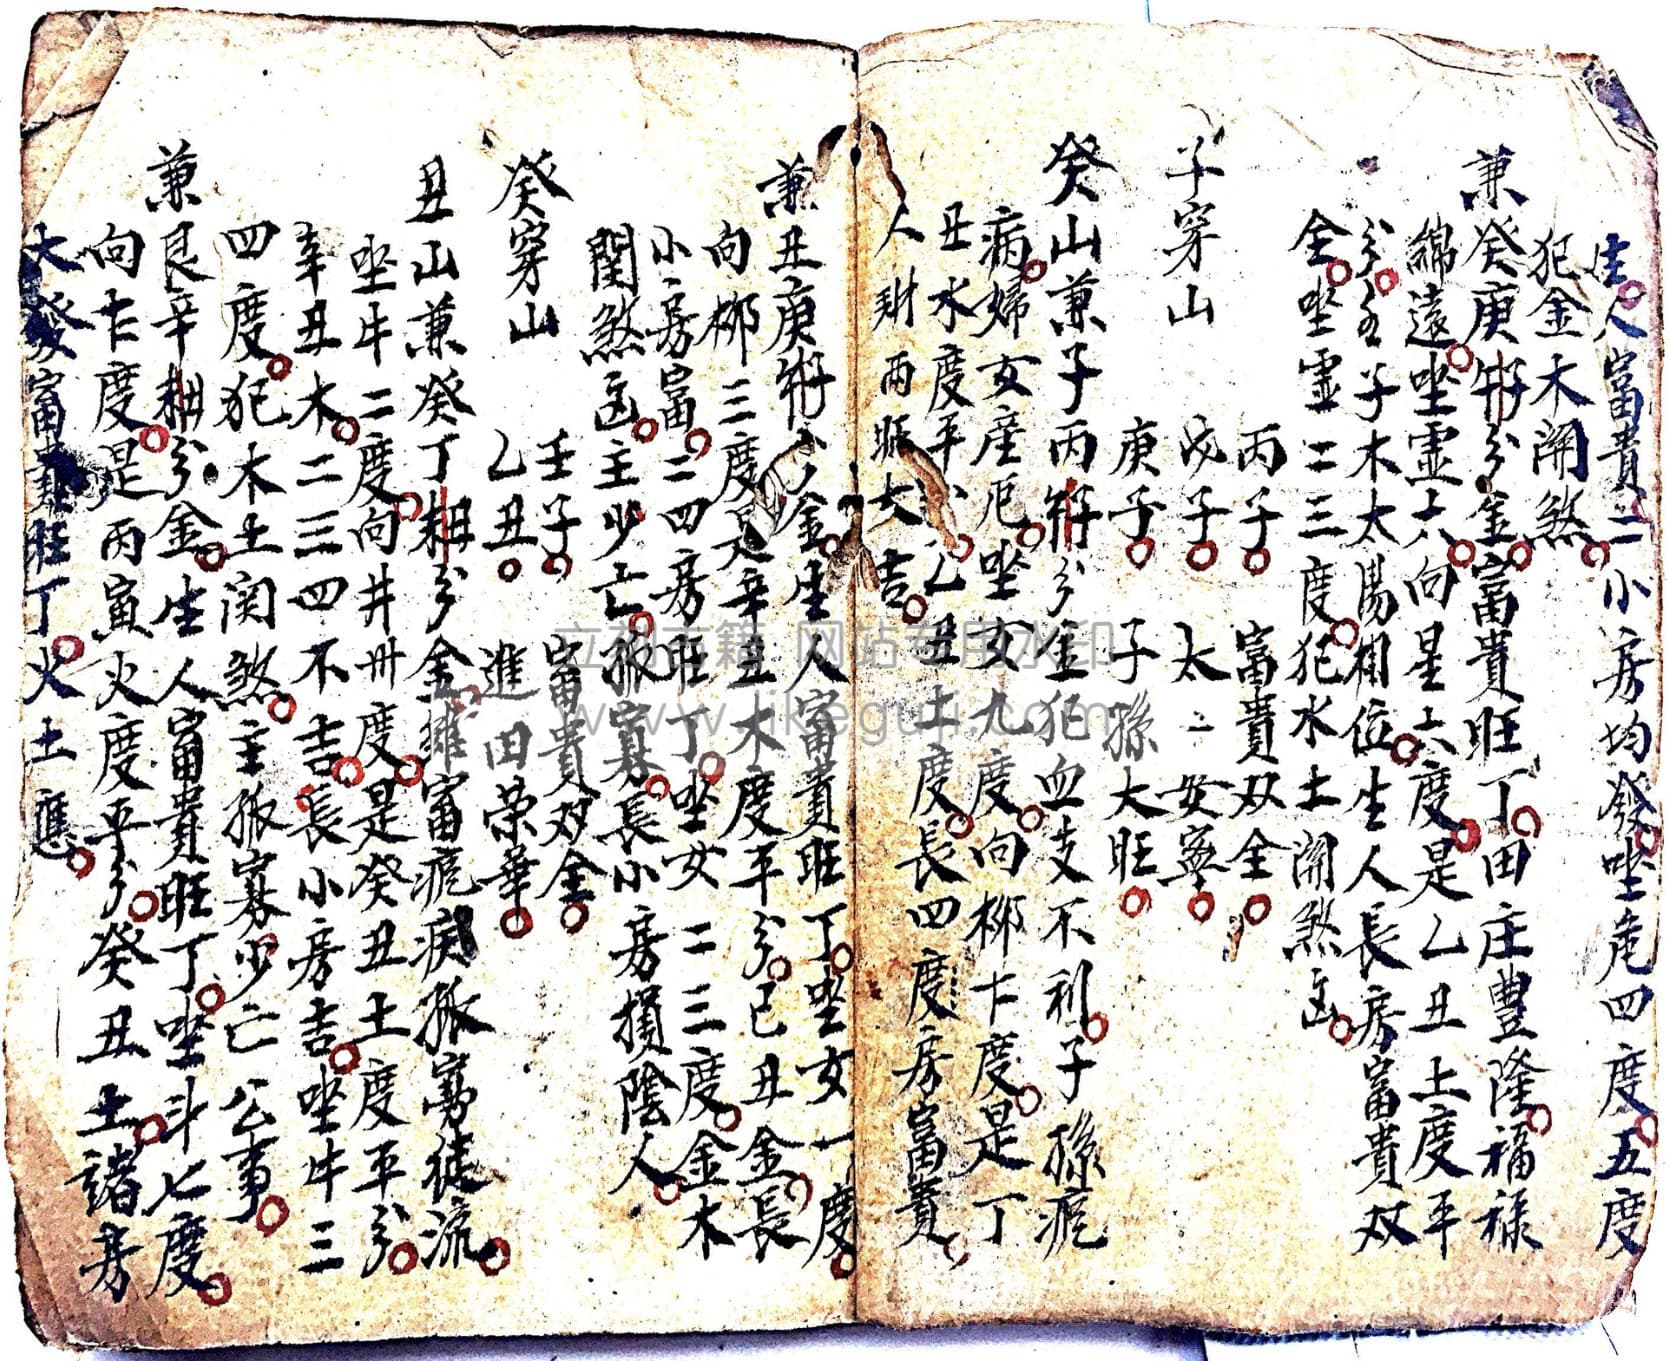 生人富貴二小房均發坐危四度五度
犯金木関煞
兼癸庚子分金富貴旺丁田庄豐隆福祿
綿遠坐虛六向星六度是乙丑土度平
分金子木太陽相位生人長房富貴双
全坐虛二三度犯水土関煞凶
丙子 富貴双全
子穿山 戊子 太二安寧
庚子 子孫大旺
癸山兼子丙分金犯血支不利子孫瘋
病婦女產厄坐女九度向柳七度是丁
丑水度平分乙丑土度長四度房富貴
人財兩旺大吉
兼丑庚分金生人富貴旺丁坐女一度
向柳三度是辛丑木度平分己丑金長
小房富二四房旺丁坐女二三度金木
関煞凶主少亡孤寡長小房損陰人
癸穿山 壬子 富貴双全
乙丑 進田榮華
丑山兼癸丁分金雖富瘋疾孤寡徒流
坐牛二度向井卅度是癸丑土度平分
辛丑木二三四不吉長小房吉坐牛三
四度犯木土関煞主孤寡少亡公事
兼艮辛分金生人富貴旺丁坐斗七度
向七度是丙寅火度平分癸丑土諸房
大發富貴旺丁火土應
立刻古籍 网站专用水印
www.likeguji.com